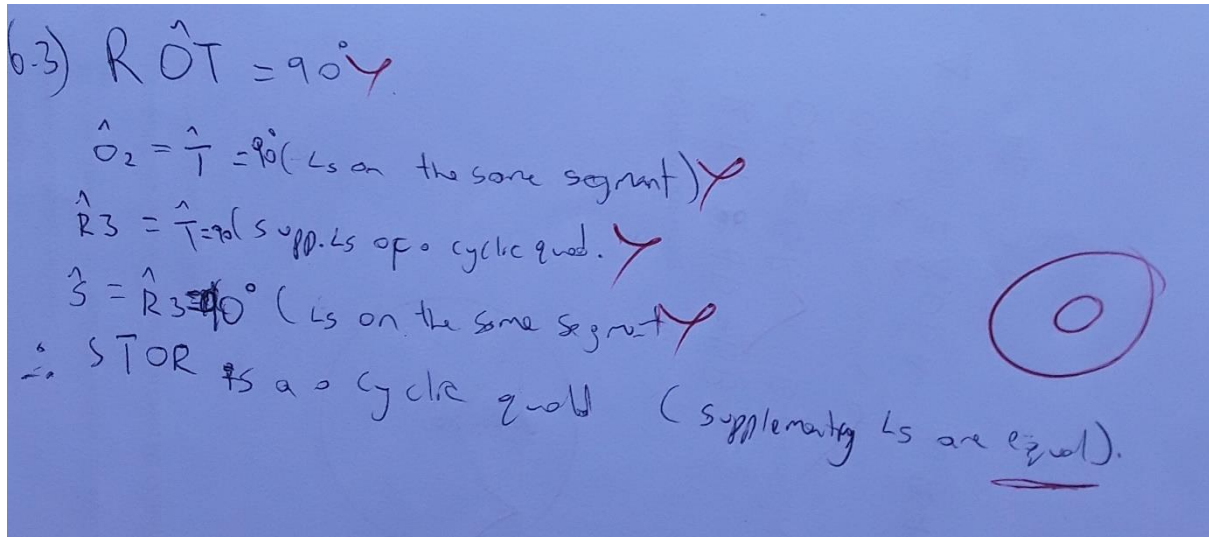 6.3) RÔT = 90°
Ô2 = T̂ = 90°(∠s on the same segment)
R̂3 = T̂=90( supp. ∠s of a cyclic quad.
Ŝ = R̂3=90° (∠s on the same segment
∴ STOR is a a cyclic quad (supplementry ∠s are equal).
0